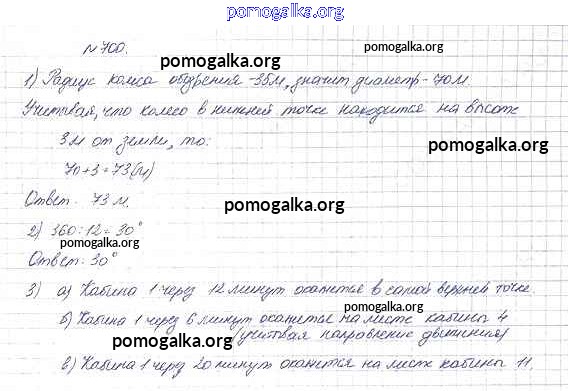 pomogalka.org
№700.
pomogalka.org
pomogalka.org
1) Радиус колеса обозрения - 35 м, значит диаметр - 70 м.
Учитывая, что колесо в нижней точке находится на высоте
3 м от земли, то:
pomogalka.org
70+3=73(м)
Ответ: 73 м.
pomogalka.org
2) 360:12=30°
pomogalka.org
Ответ: 30°
3) а) Кабина 1 через 12 минут окажется в самой верхней точке.
pomogalka.org
б) Кабина 1 через 6 минут окажется на месте кабины 4
pomogalka.org
(учитывая направление движения)
в) Кабина 1 через 20 минут окажется на месте кабины 11.